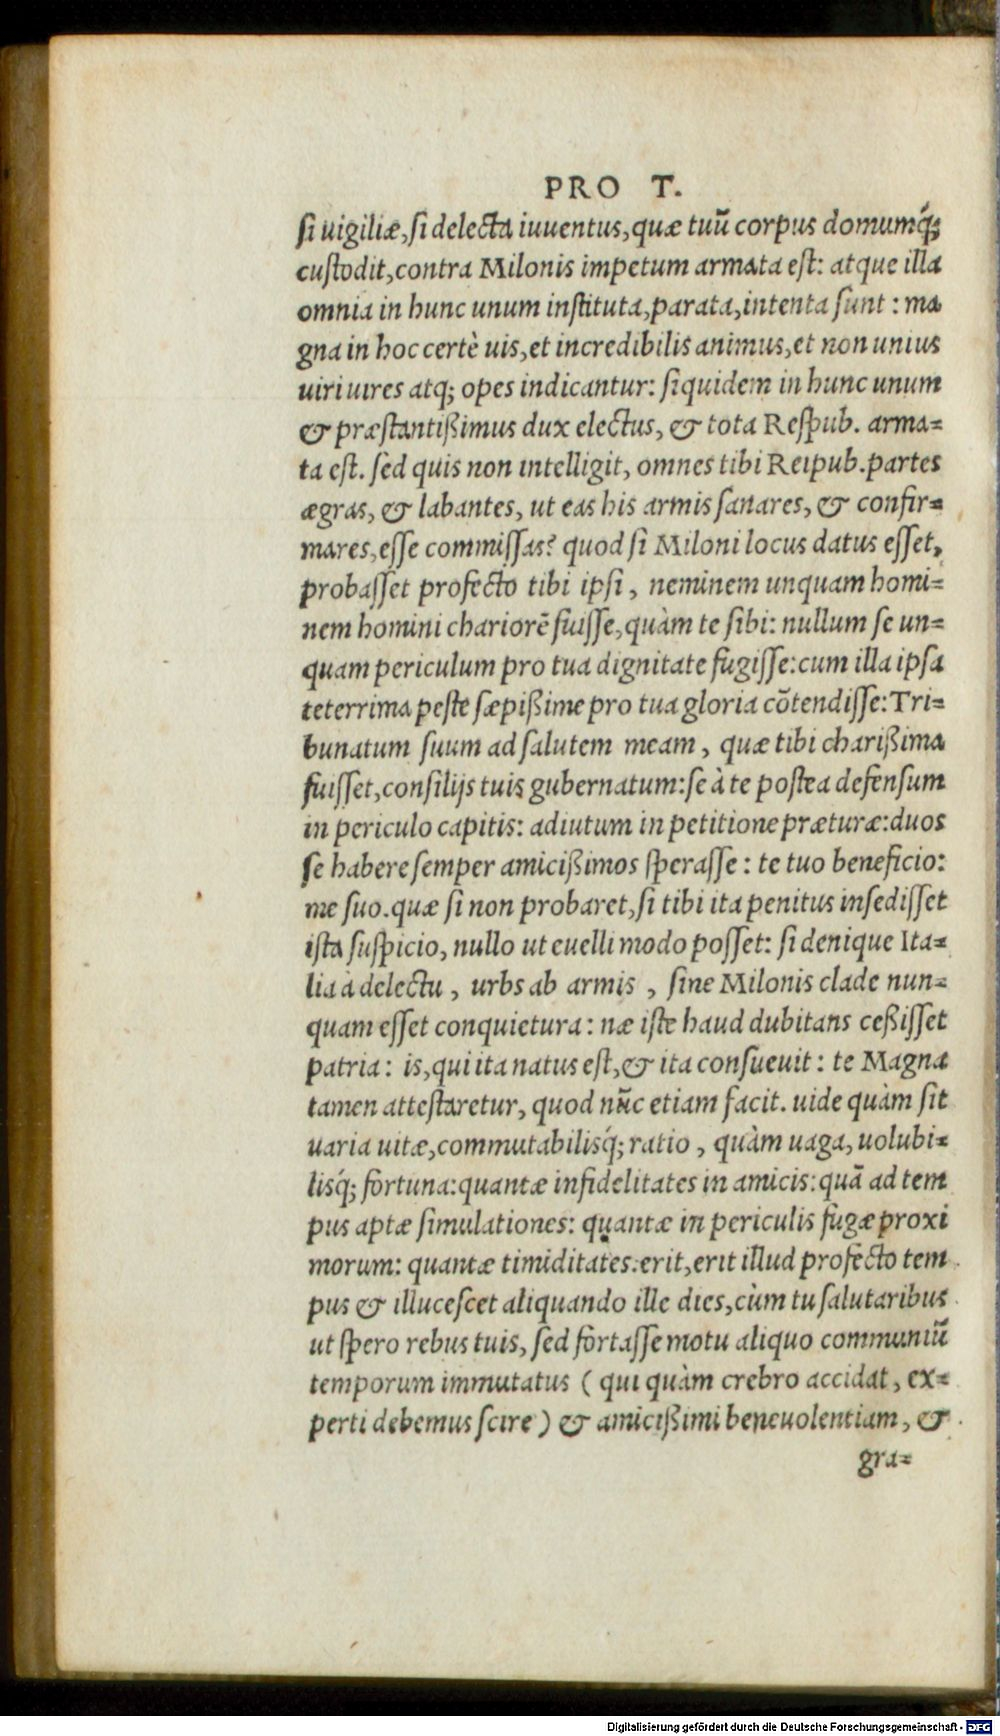 PRO T.
si uigiliæ, si delecta iuuentus, quæ tuũ corpus domumq́;
custodit, contra Milonis impetum armata est: atque illa
omnia in hunc unum instituta, parata, intenta sunt: ma
gna in hoc certè uis, et incredibilis animus, et non unius
uiri uires atq; opes indicantur: siquidem in hunc unum
& præstantißimus dux electus, & tota Respub. arma=
ta est. sed quis non intelligit, omnes tibi Reipub. partes
ægras, & labantes, ut eas his armis sanares, & confir=
mares, esse commissas? quod si Miloni locus datus esset,
probasset profecto tibi ipsi, neminem unquam homi=
nem homini chariorẽ fuisse, quàm te sibi: nullum se un=
quam periculum pro tua dignitate fugisse: cum illa ipsa
teterrima peste sæpißime pro tua gloria cõtendisse: Tri=
bunatum suum ad salutem meam, quæ tibi charißima
fuisset, consilijs tuis gubernatum: se à te postea defensum
in periculo capitis: adiutum in petitione præturæ: duos
se habere semper amicißimos sperasse: te tuo beneficio:
me suo. quæ si non probaret, si tibi ita penitus insedisset
ista suspicio, nullo ut euelli modo posset: si denique Ita=
lia à delectu, urbs ab armis, sine Milonis clade nun=
quam esset conquietura: næ iste haud dubitans ceßisset
patria: is, qui ita natus est, & ita consueuit: te Magna
tamen attestaretur, quod nũc etiam facit. uide quàm sit
uaria uitæ, commutabilisq́; ratio, quàm uaga, uolubi=
lisq́; fortuna: quantæ infidelitates in amicis: quã ad tem
pus aptæ simulationes: quantæ in periculis fugæ proxi
morum: quantæ timiditates. erit, erit illud profecto tem
pus & illucescet aliquando ille dies, cùm tu salutaribus
ut spero rebus tuis, sed fortasse motu aliquo communiũ
temporum immutatus ( qui quàm crebro accidat, ex=
perti debemus scire ) & amicißimi beneuolentiam, &
gra=
Digitalisierung gefördert durch die Deutsche Forschungsgemeinschaft - DFG